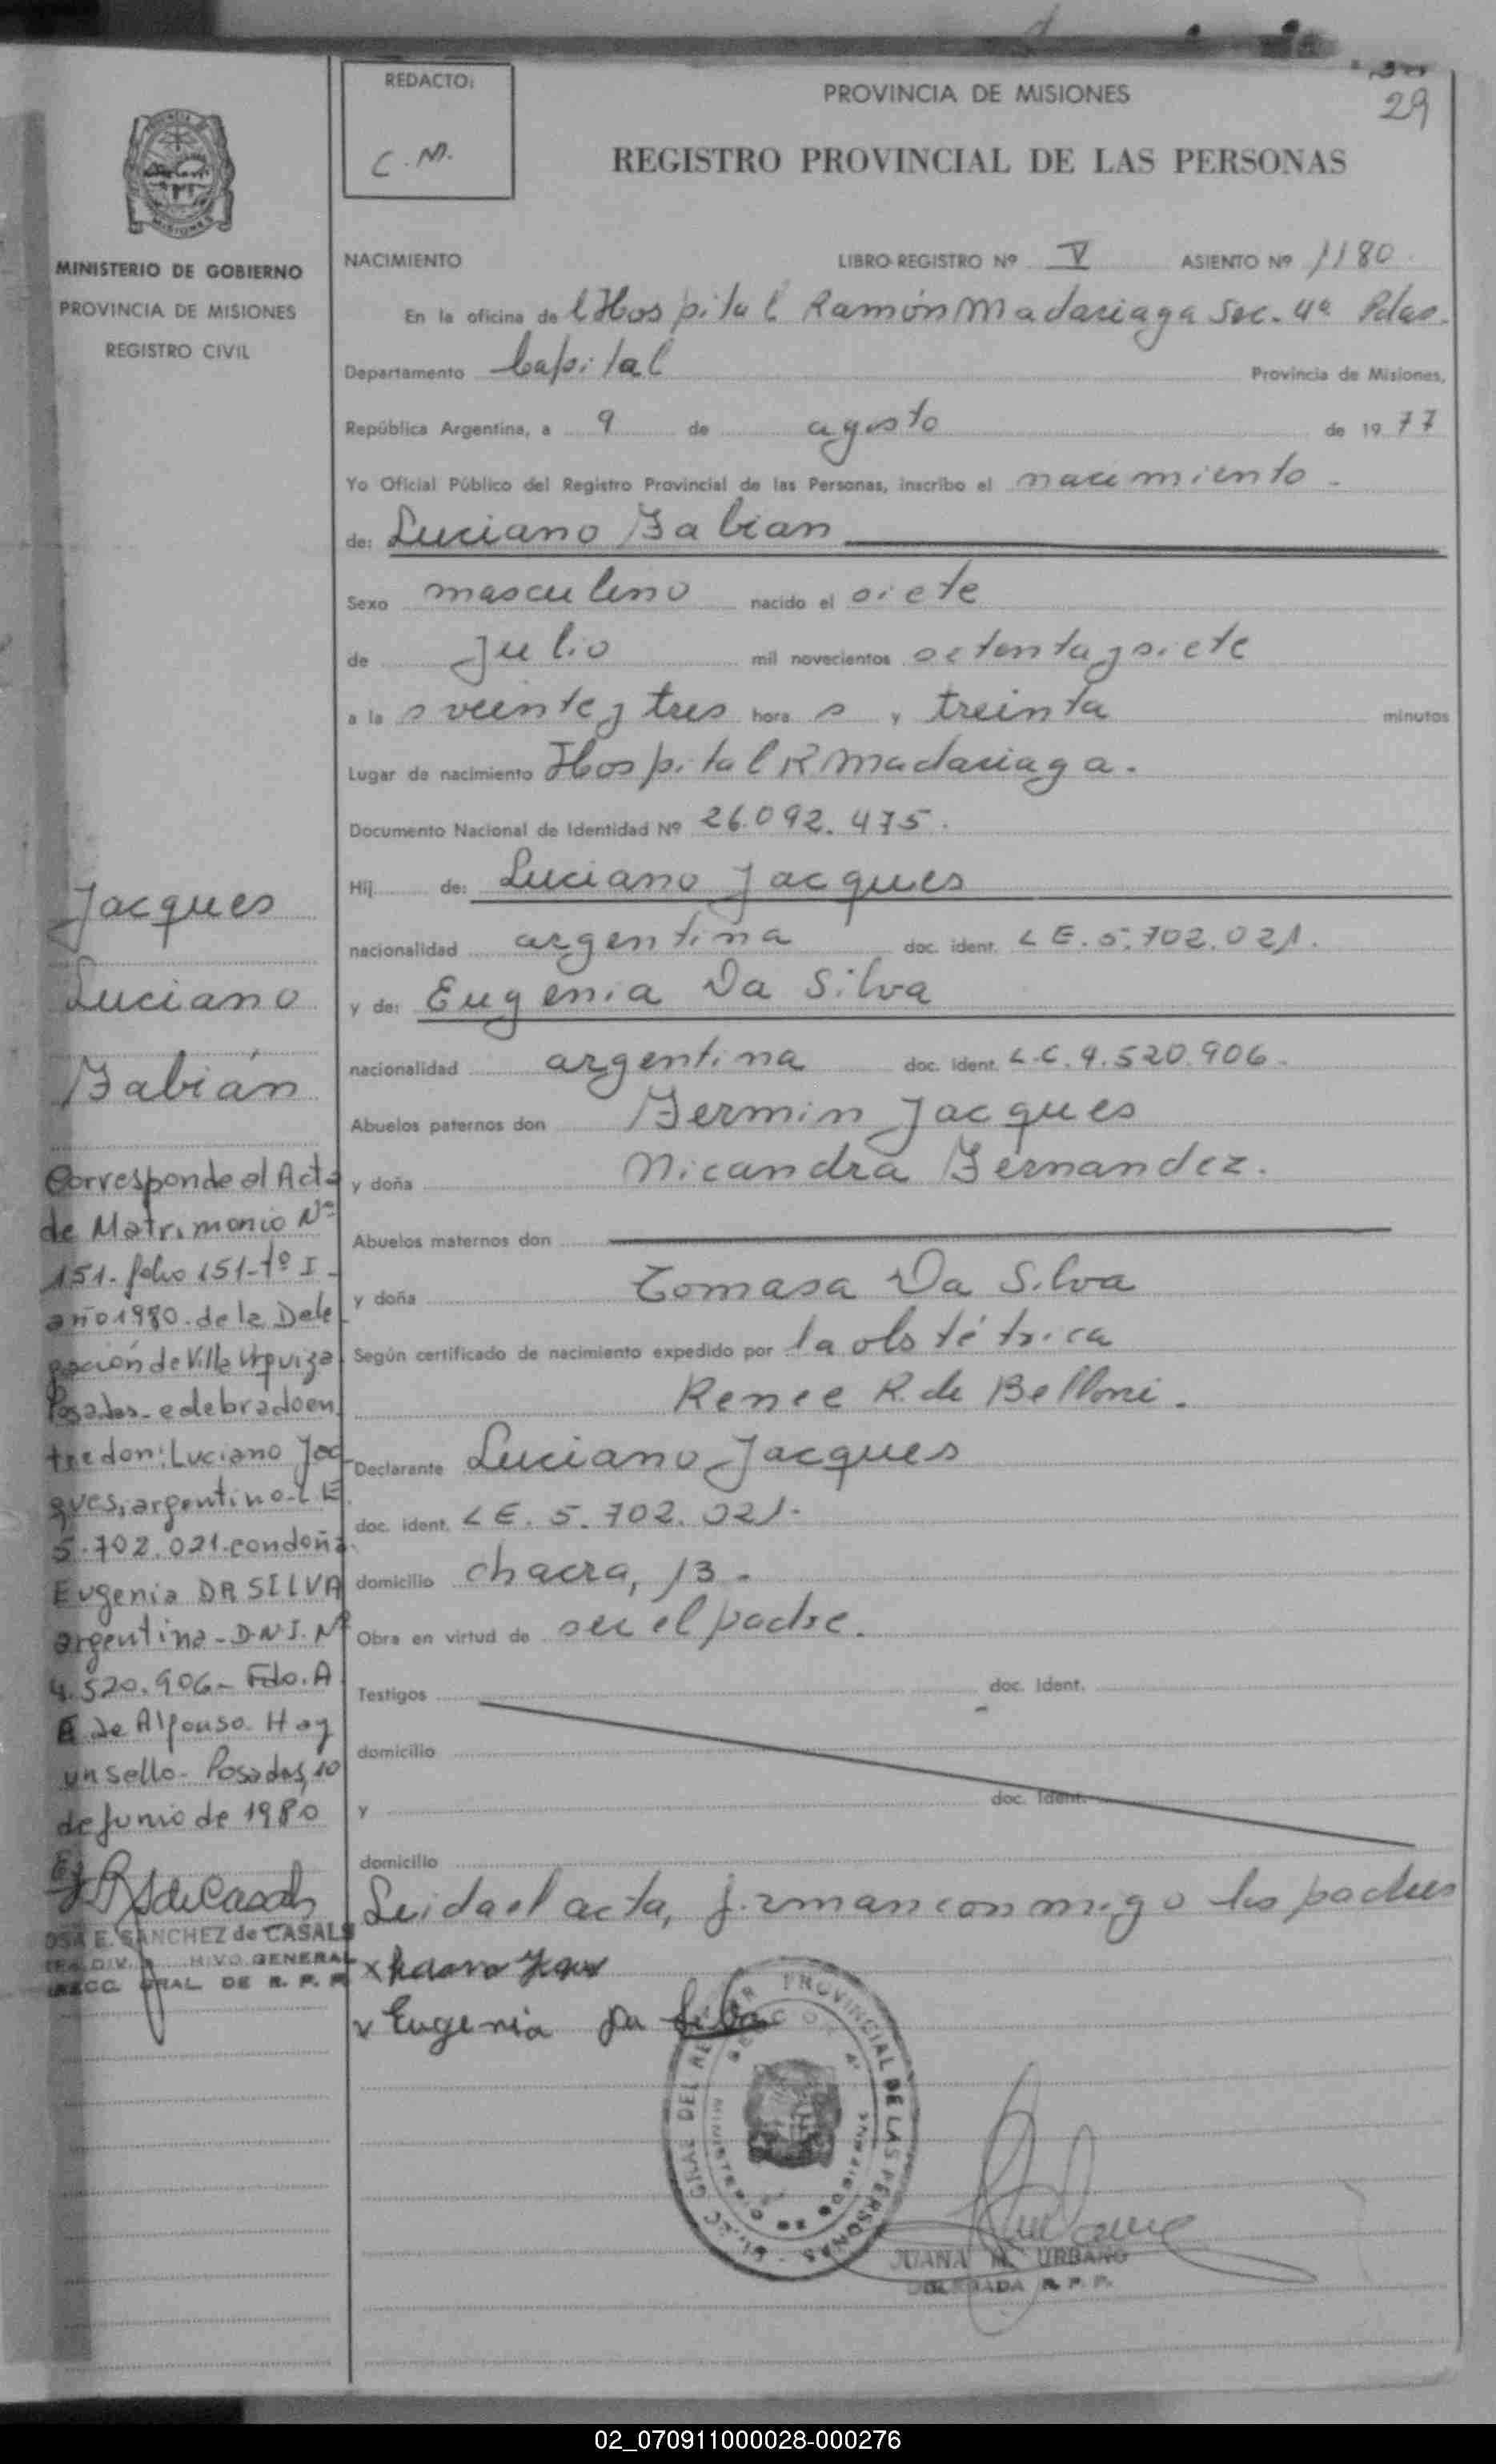 REDACTO:
C.M.
PROVINCIA DE MISIONES
29
REGISTRO PROVINCIAL DE LAS PERSONAS
MINISTERIO DE GOBIERNO
PROVINCIA DE MISIONES
REGISTRO CIVIL
NACIMIENTO LIBRO REGISTRO Nº V ASIENTO Nº 1180
En la oficina del Hospital Ramón Madariaga Sec. 4ª Pdas.
Departamento Capital Provincia de Misiones,
República Argentina, a 9 de agosto de 1977
Yo Oficial Público del Registro Provincial de las Personas, inscribo el nacimiento -
de: Luciano Fabian
Sexo masculino nacido el siete
de Julio mil novecientos setenta y siete
a las veinte y tres horas y treinta minutos
Lugar de nacimiento Hospital R Madariaga.
Documento Nacional de Identidad Nº 26.092.475.
Hij de: Luciano Jacques
nacionalidad argentina doc. ident. LE. 5.702.021.
y de: Eugenia Da Silva
nacionalidad argentina doc. ident. L.C. 4.520.906-
Abuelos paternos don Fermin Jacques
y doña Nicandra Fernandez.
Abuelos maternos don
y doña Tomasa Da Silva
Según certificado de nacimiento expedido por la obstétrica
Renee R. de Belloni.
Declarante Luciano Jacques
doc. ident. LE. 5.702.021-
domicilio chacra, 13.
Obra en virtud de ser el padre.
Testigos doc. Ident.
domicilio
y doc. Ident.
domicilio
Leida el acta, firman conmigo los padres
x
x Eugenia Da Silva
Jacques
Luciano
Fabián
Corresponde al Acta
de Matrimonio Nº
151- folio 151-tº I-
año 1980. de la Dele
gación de Villa Urquiza
Posadas- celebrado en
tre don: Luciano Jac
ques, argentino- L E
5.702.021. con doña
Eugenia DA SILVA
argentina- D.N.I. Nº
4.520.906- Fdo. A
E de Alfonso. Hay
un sello- Posadas, 10
de Junio de 1980
SdeCasals
OSA E. SANCHEZ de CASALS
HIVO GENERAL
GRAL DE R. P. P.
GRAL DEL REG PROVINCIAL DE LAS PERSONAS
SECCION 4ª
MINISTERIO DE GOBIERNO
JUANA M. URBANO
DELEGADA R. P. P.
02_070911000028-000276